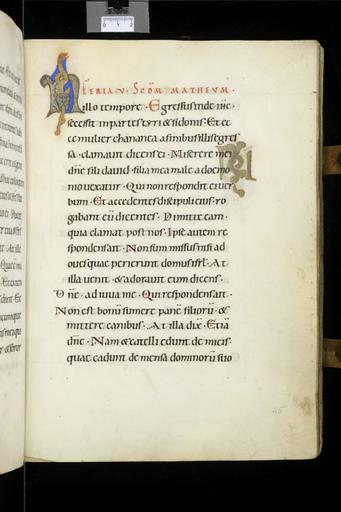 FERIA .V. SCDM MATHEVM.
In illo tempore. Egressus inde ihc
secessit in partes tyri & sidonis. Et ec
ce mulier chananea a finibus illis egres
sa. clamauit dicens ei. Miserere mei
dne fili dauid. filia mea male a doemo
nio uexatur. Qui non respondit ei uer
bum. Et accedentes discipuli eius. ro
gabant eu dicentes. Dimitte eam.
quia clamat post nos. Ipse autem re
spondens ait. Non sum missus nisi ad
oues quae perierunt domus isrl. At
illa uenit. & adorauit eum dicens.
Dne. adiuua me. Qui respondens ait.
Non est bonu sumere pane filioru. &
mittere canibus. At illa dix. Etia
dne. Nam & catelli edunt de micis.
quae cadunt de mensa dominoru suo